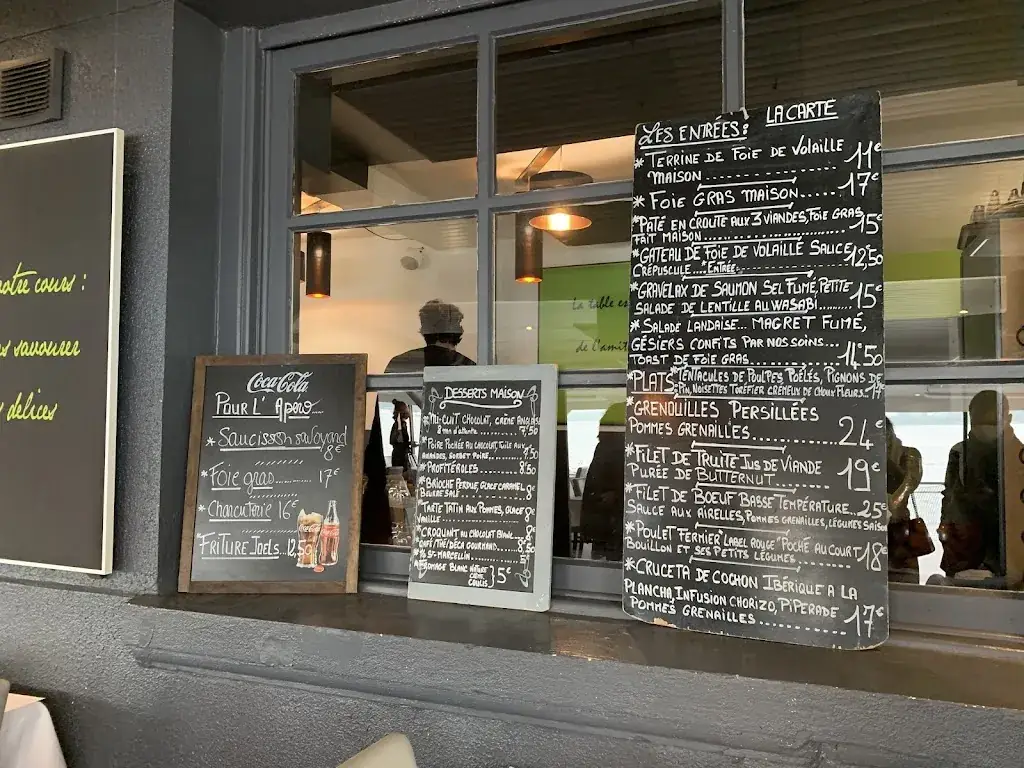 notre cœurs :
savourer
délices
La table es
de l'amit
Coca-Cola
Pour l'Apéro....
* Saucisson savoyard
8€
* Foie gras........... 17€
* Charcuterie 16€
* Friture Joels.. 12,50
Desserts Maison
* Mi-cuit chocolat, crème anglaise
8 mn d'attente ........ 9,50
* Poire pochée au chocolat, tuile aux
amandes, sorbet poire ....... 9,50
* Profitéroles ........ 8,50
* Brioche perdue, glace caramel
beurre salé ........ 8€
* Tarte tatin aux pommes, glace
vanille ........ 8€
* Croquant au chocolat blanc
Café/thé/déca gourmand
½ St-Marcellin
* Fromage blanc nature
crème } 5€
coulis
La Carte
Les Entrées:
* Terrine de foie de volaille
maison 11€
* Foie gras maison...... 17€
* Pâté en croute aux 3 viandes, foie gras
fait maison............ 15€
* Gateau de foie de volaille sauce
crépuscule... Entrée....... 12,50
* Gravelax de saumon sel fumé, petite
salade de lentille au wasabi........ 15€
* Salade landaise... magret fumé,
gésiers confits par nos soins...
toast de foie gras.......... 14,50
Plats * Tentacules de poulpes poêlés, pignons de
pin, noisettes torefier crémeux de choux fleurs... 17
* Grenouilles persillées
pommes grenailles.......... 24€
* Filet de truite jus de viande
purée de butternut....... 19€
* Filet de boeuf basse température... 25€
sauce aux airelles, pommes grenailles, légumes saison
* Poulet fermier "Label Rouge" poché au court
bouillon et ses petits légumes........ 18€
* Cruceta de cochon ibérique a la
plancha, infusion chorizo, piperade
pommes grenailles............ 17€